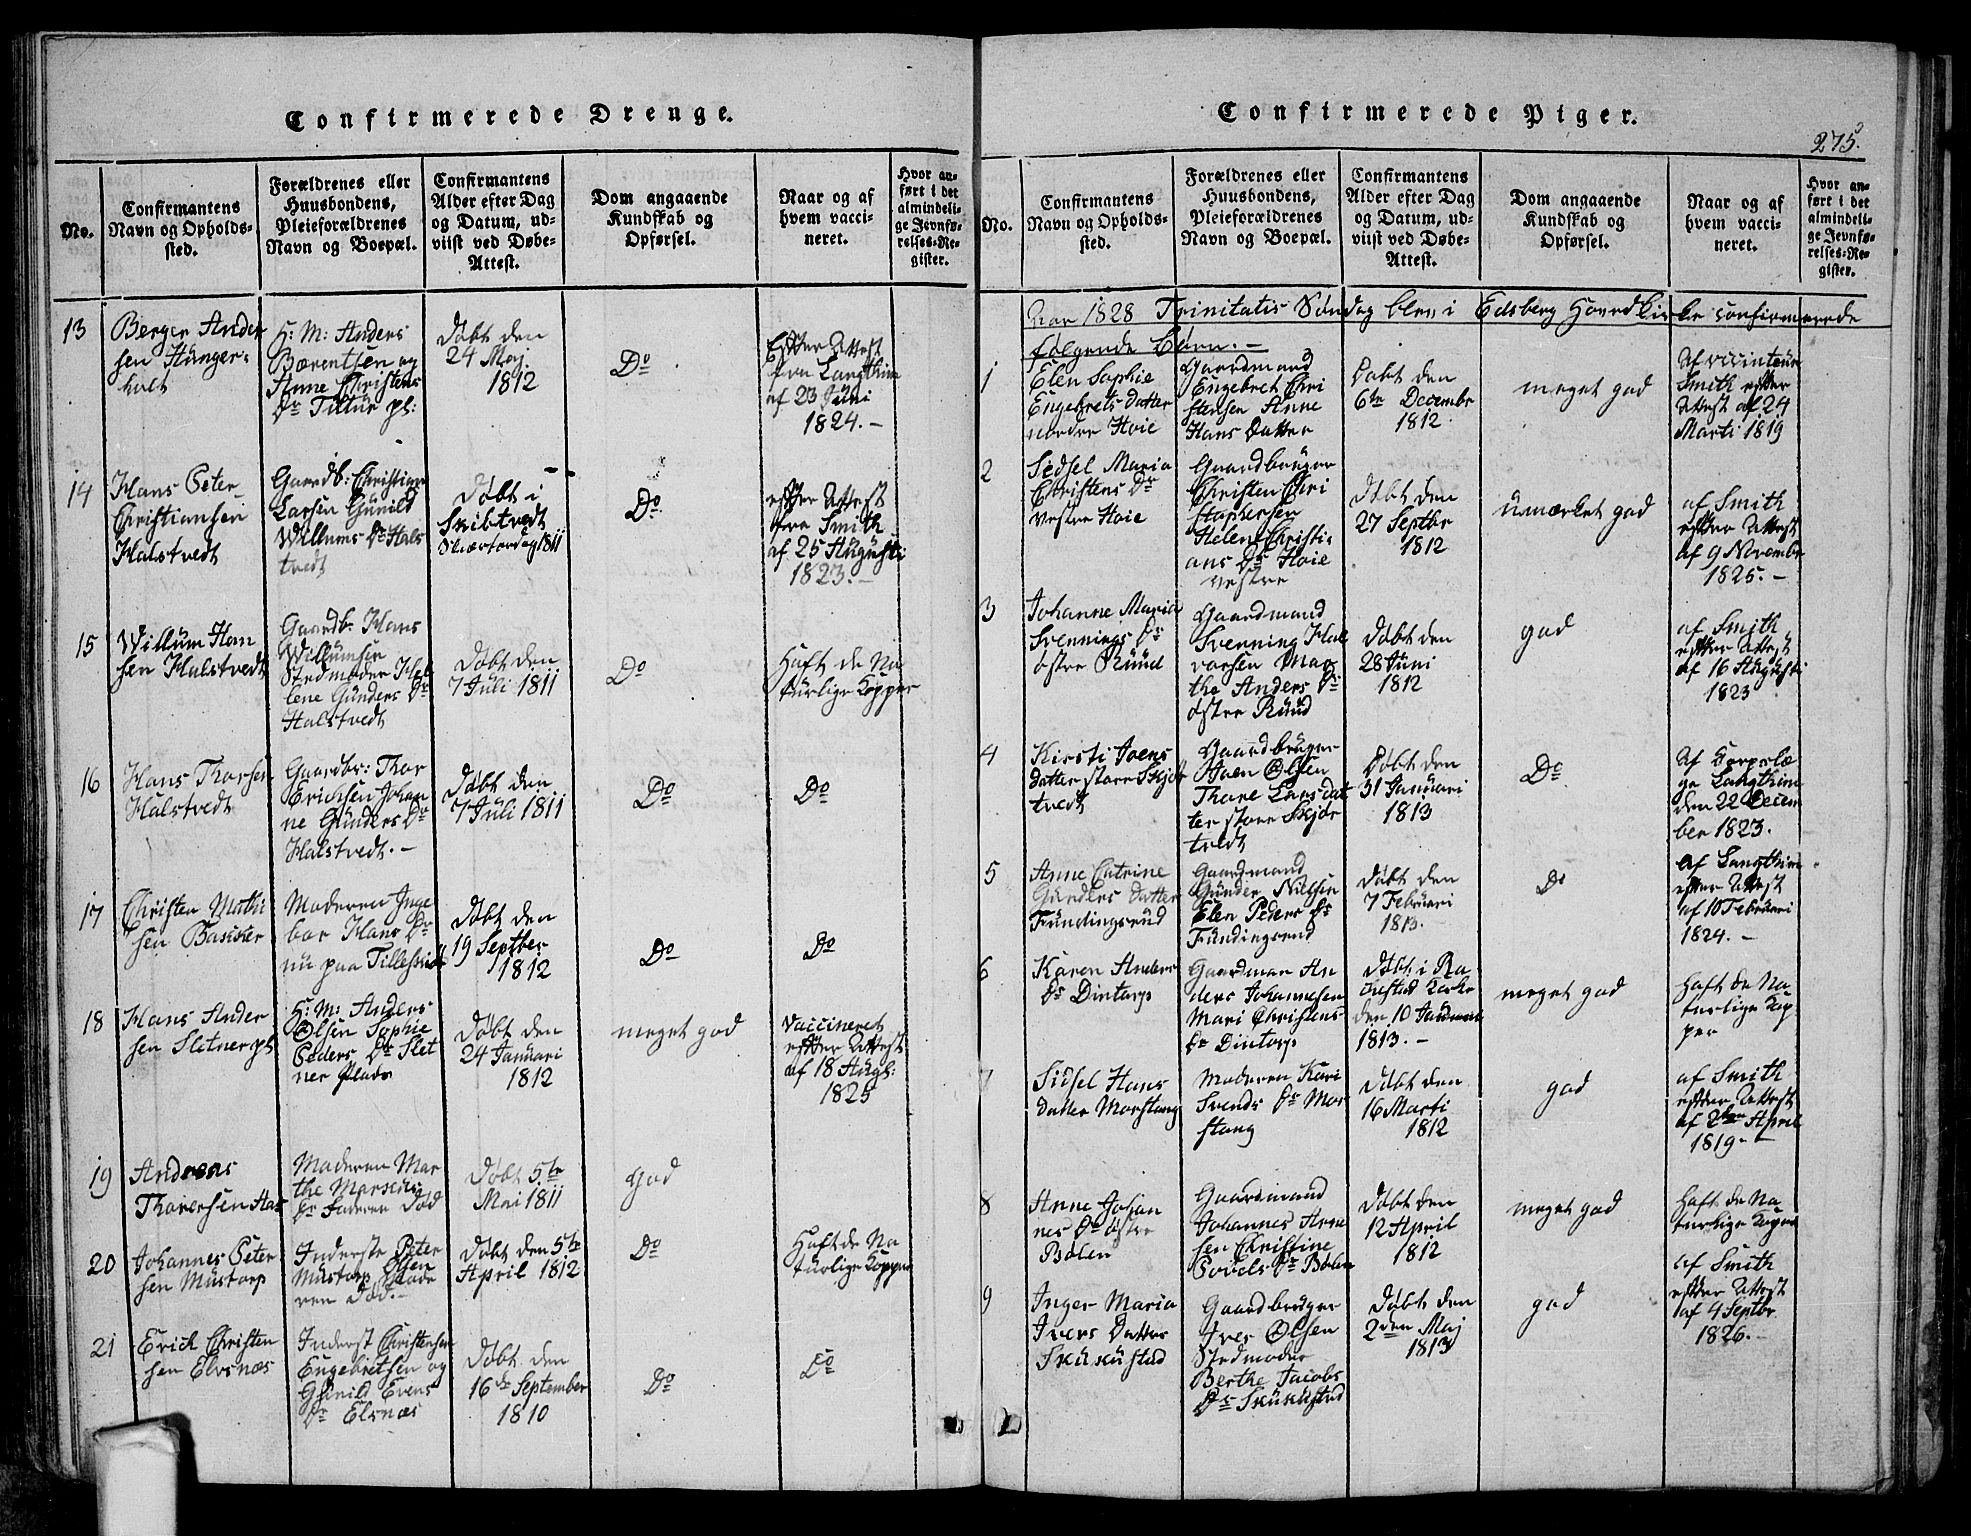 Confirmerede Drenge.
No.
Confirmantens
Navn og Opholds-
sted.
Forældrenes eller
Huusbondens,
Pleieforældrenes
Navn og Boepæl.
Confirmantens
Alder efter Dag
og Datum, ud-
viist ved Døbe-
Attest.
Dom angaaende
Kundskab og
Opførsel.
Naar og af
hvem vacci-
neret.
Hvor an-
ført i det
almindeli-
ge Jevnfø-
relses-Re-
gister.
13
Berger Ander
sen Hunger-
holt
H: M: Anders
Bærentsen og
Anne Christens
Dr Tittur pl:
Døbt den
24 Maj
1812
Do
Efter Attest
fra Langthim
af 23 Juni
1824. -
14
Hans Peter
Christiansen
Halstvedt
Gaardb: Christian
Larsen Gunild
Willums Dr Hals
tvedt
Døbt i
Skibtvedt
Skiærtorsdag 1811
Do
efter Attest
fra Smith
af 25 Augusti
1823. -
15
Willum Han
sen Halstvedt
Gaardb. Hans
Willumsen
Stedmoder Hel
lene Gunders Dr
Halstvedt
Døbt den
7 Juli 1811
Do
Haft de Na
turlige Kopper
16
Hans Thorsen
Halstvedt
Gaardbr: Thor
Erichsen Johan
ne Gunders Dr
Halstvedt. -
Døbt den
7 Juli 1811
Do
Do
17
Christen Mathi
sen
Moderen Inge
bor Hans Dr
nu paa
Døbt den
19 Septber
1812
Do
Do
18
Hans Ander
sen Sletner pl
H: M: Anders
Olsen Sophie
Peders Dr Slet
ner Plads
Døbt den
24 Januari
1812
meget god
Vaccineret
efter Attest
af 18 Augs:
1825
19
Andreas
Thoresen
Moderen Mar
the
Dr Faderen Død
Døbt 5te
Mai 1811
god
20
Johannes Peter
sen Mustorp
Inderste Peter
Olsen
Mustorp Mode
ren død. -
Døbt den 5te
April 1812
Do
Haft de Na
turlige Kopper
21
Erich Christen
sen Elvsnæs
Inderst Christensen
Engebretsen og
Gunild Evens
Dr Elsnæs
Døbt den
16de September
1810
Do
Do
Confirmerede Piger.
275.
No.
Confirmantens
Navn og Opholds-
sted.
Forældrenes eller
Huusbondens,
Pleieforældrenes
Navn og Boepæl.
Confirmantens
Alder efter Dag
og Datum, ud-
viist ved Døbe-
Attest.
Dom angaaende
Kundskab og
Opførsel.
Naar og af
hvem vacci-
neret.
Hvor an-
ført i det
almindeli-
ge Jevnfø-
relses-Re-
gister.
Aar 1828 Trinitatis Søndag blev i Edsberg Hovedkirke confirmerede
følgende Børn. -
1
Elen Sophie
Engebrets datter
nordre Hoie
Gaardmand
Engebret Chri
stensen Anne
Hans Datter
Døbt den
6te Decembr
1812
meget god
Af
Smith efter
Attest af 24
Marti 1819
2
Sidsel Maria
Christens Dr
Vestre Hoie
Gaardbruger
Christen Chri
stophersen
Helene Christi
ans Dr Hoie
vestre
Døbt den
27 Septbr
1812
umærket god
af Smith
efter Attest
af 9 Novembr
1825. -
3
Johanne Maria
Svennings Dr
østre Ruud
Gaardmand
Svenning Hal
vorsen Mar
the Anders Dr
østre Ruud
Døbt den
28 Juni
1812
god
af Smith
efter Attest
af 16 Augusti
1823
4
Kirsti Joens
datter store Skjør
tvedt
Gaardbruger
Joen Olsen
Thore Lars dat
ter store Skjør
tvedt
Døbt den
31 Januari
1813
Do
Af Corpslæ
ge Langthim
den 22 Decem
ber 1823.
5
Anne Catrine
Gunders Datter
Fundingsrud
Gaardmand
Gunder Nilsen
Elen Peders Dr
Fundingsrud
Døbt den
7 Februari
1813.
Do
af Langthim
efter Attest
af 10 Februari
1824. -
6
Karen Anders
Dr Dintorp
Gaardman An
ders Johannesen
Mari Christens
Dr Dintorp
Døbt i Ra
kestad Kirke
den 10 Januari
1813. -
meget god
haft de Na
turlige Kop
per
7
Sidsel Hans
datter Morstang
Moderen Kari
Svends Dr Mor
stang
Døbt den
16 Marti
1812
god
af Smith
efter Attest
af 2den April
1819. -
8
Anne Johan
nes Dr østre
Bølen
Gaardmand
Johannes Arne
sen Christine
Povels Dr Bølen
Døbt den
12 April
1812
meget god
haft de Na
turlige Koper
9
Inger Maria
Ivers Datter
Skukustad
Gaardbruger
Iver Olsen
Stedmoder
Berthe Jacobs
Dr Skukustad
Døbt den
2den Maj
1813
god
af Smith
efter Attest
af 4 Septbr
1826. -